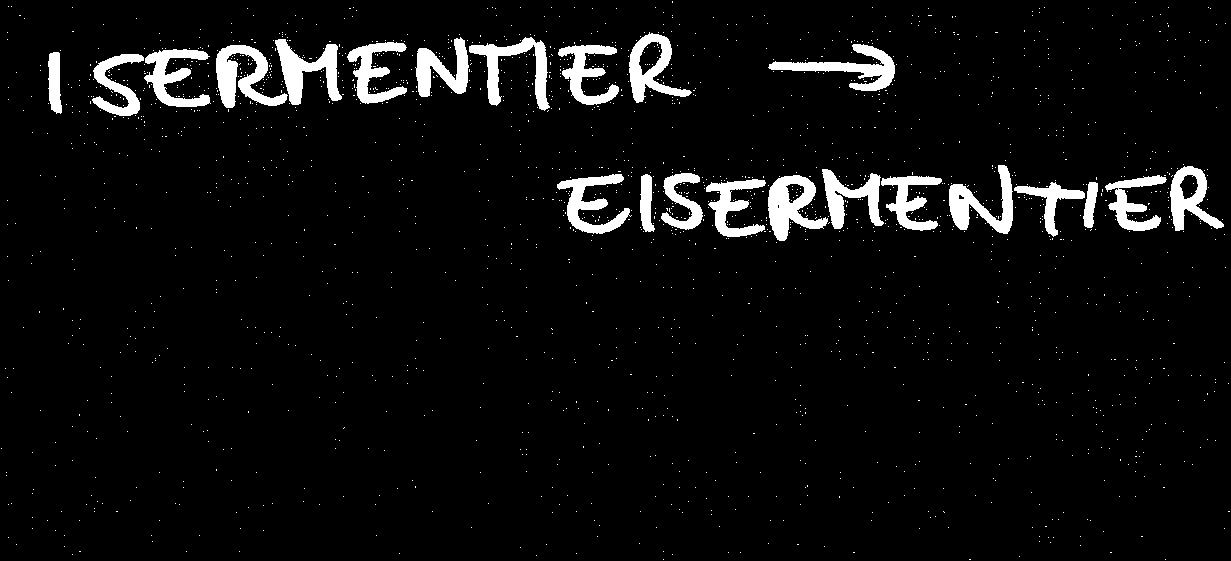 ISERMENTIER →
EISERMENTIER